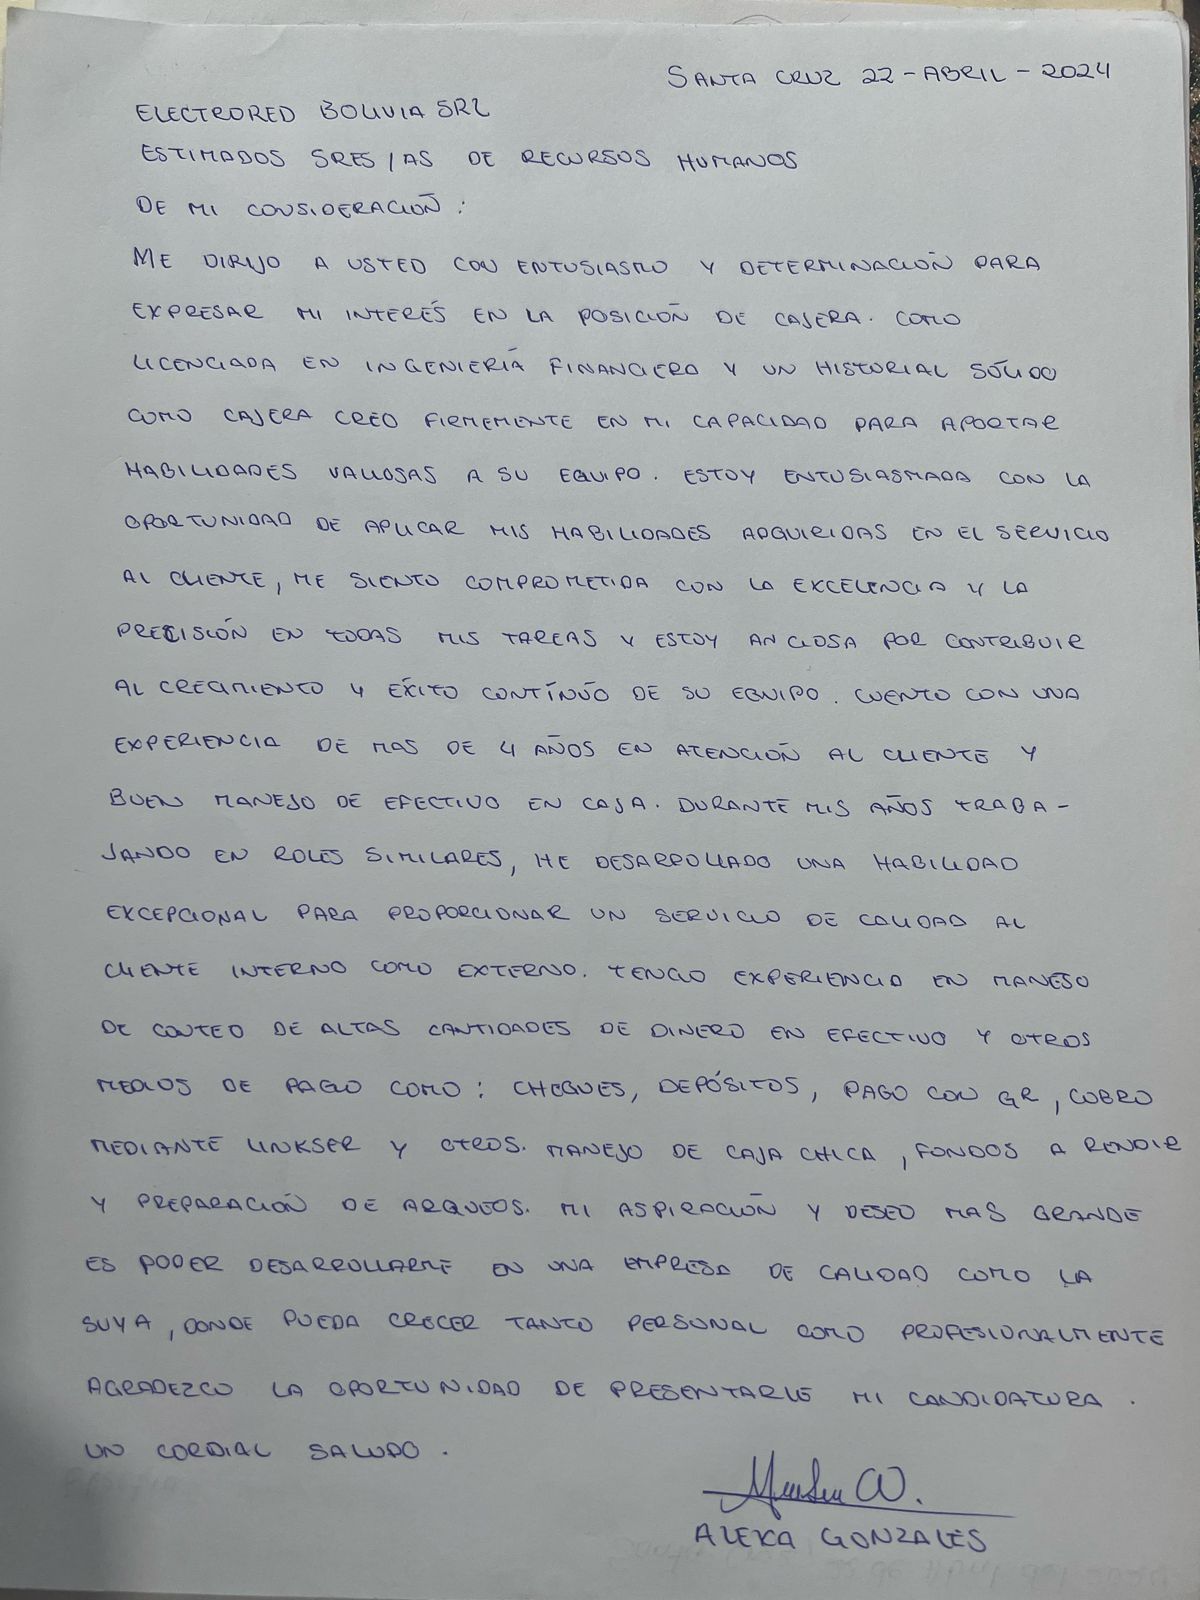 SANTA CRUZ 22 - ABRIL - 2024
ELECTRORED BOLIVIA SRL
ESTIMADOS SRES/AS DE RECURSOS HUMANOS
DE MI CONSIDERACIÓN :
ME DIRIJO A USTED CON ENTUSIASMO Y DETERMINACIÓN PARA
EXPRESAR MI INTERÉS EN LA POSICIÓN DE CAJERA. COMO
LICENCIADA EN INGENIERÍA FINANCIERO Y UN HISTORIAL SÓLIDO
COMO CAJERA CREO FIRMEMENTE EN MI CAPACIDAD PARA APORTAR
HABILIDADES VALIOSAS A SU EQUIPO. ESTOY ENTUSIASMADA CON LA
OPORTUNIDAD DE APLICAR MIS HABILIDADES ADQUIRIDAS EN EL SERVICIO
AL CLIENTE, ME SIENTO COMPROMETIDA CON LA EXCELENCIA Y LA
PRECISIÓN EN TODAS MIS TAREAS Y ESTOY ANCIOSA POR CONTRIBUIR
AL CRECIMIENTO Y ÉXITO CONTÍNUO DE SU EQUIPO. CUENTO CON UNA
EXPERIENCIA DE MAS DE 4 AÑOS EN ATENCIÓN AL CLIENTE Y
BUEN MANEJO DE EFECTIVO EN CAJA. DURANTE MIS AÑOS TRABA-
JANDO EN ROLES SIMILARES, HE DESARROLLADO UNA HABILIDAD
EXCEPCIONAL PARA PROPORCIONAR UN SERVICIO DE CALIDAD AL
CLIENTE INTERNO COMO EXTERNO. TENGO EXPERIENCIA EN MANEJO
DE CONTEO DE ALTAS CANTIDADES DE DINERO EN EFECTIVO Y OTROS
MEDIOS DE PAGO COMO : CHEQUES, DEPÓSITOS, PAGO CON QR, COBRO
MEDIANTE LINKSER Y OTROS. MANEJO DE CAJA CHICA, FONDOS A RENDIR
Y PREPARACIÓN DE ARQUEOS. MI ASPIRACIÓN Y DESEO MAS GRANDE
ES PODER DESARROLLARME EN UNA EMPRESA DE CALIDAD COMO LA
SUYA, DONDE PUEDA CRECER TANTO PERSONAL COMO PROFESIONALMENTE
AGRADEZCO LA OPORTUNIDAD DE PRESENTARLE MI CANDIDATURA.
UN CORDIAL SALUDO.
ALEXA GONZALES